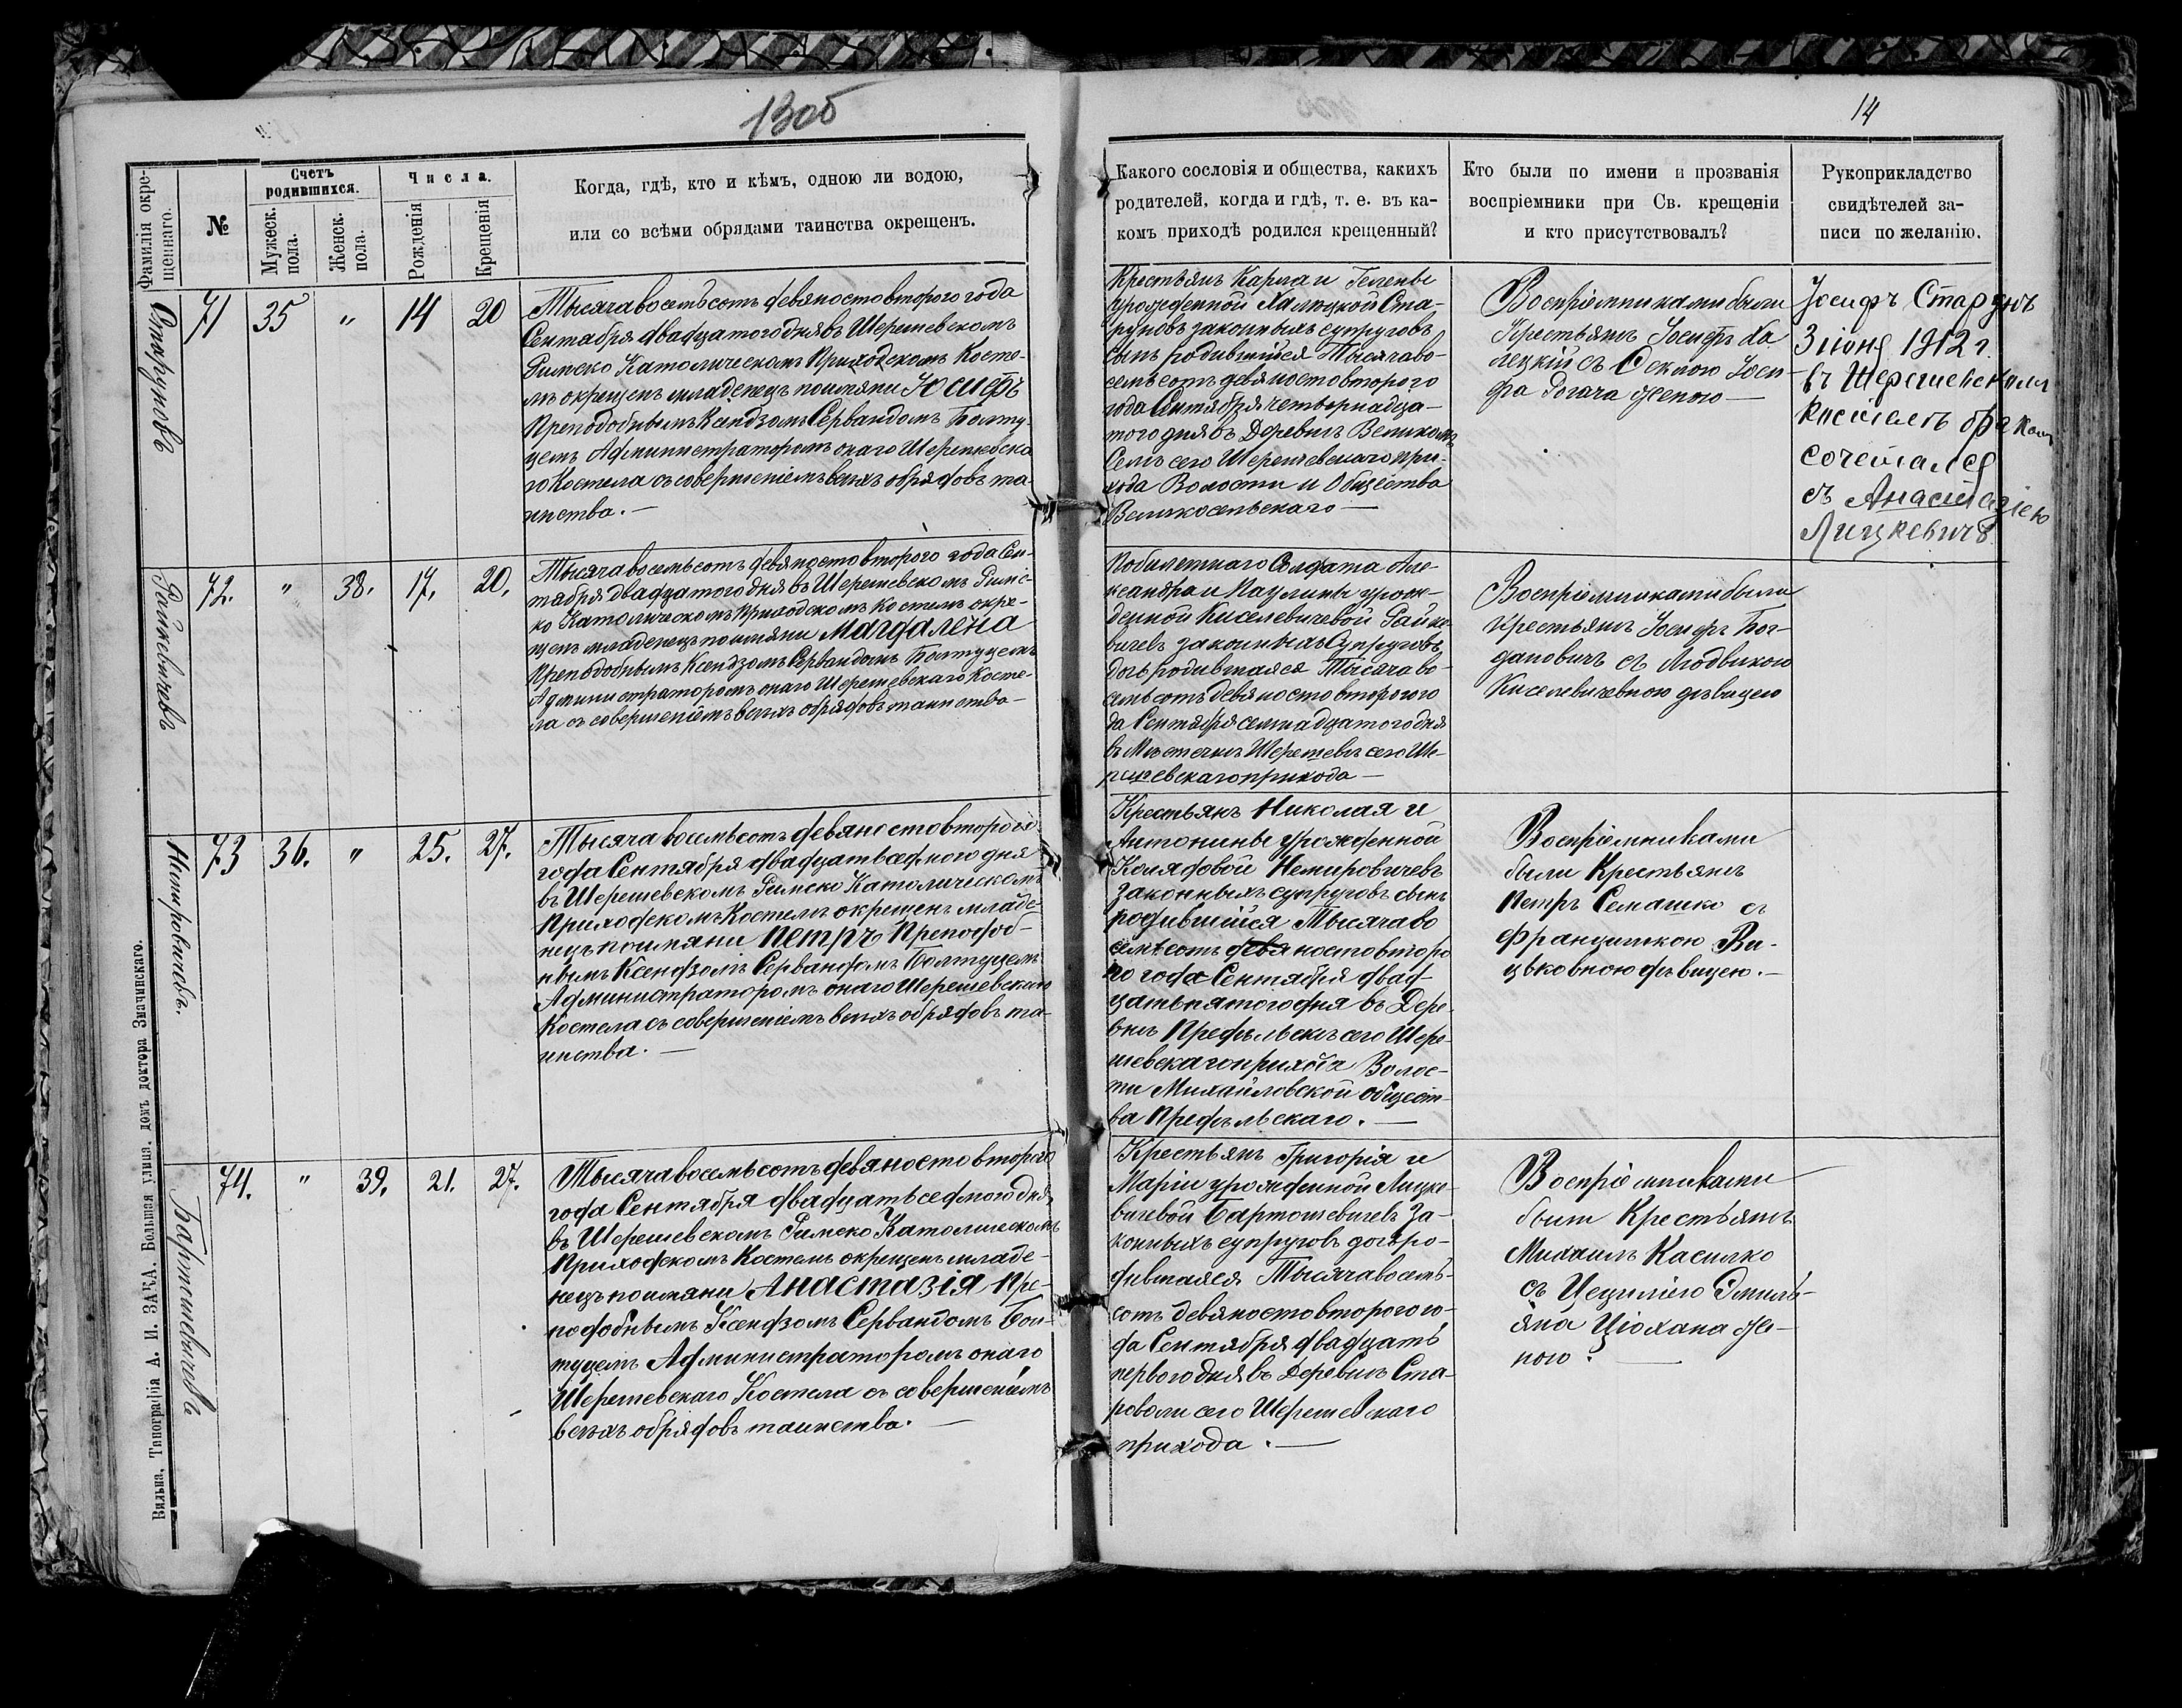 130б
14
Фамилія окре-
щеннаго.
№
Счетъ
родившихся.
Мужеск.
пола.
Женск.
пола.
Числа.
Рожденія
Крещенія
Когда, гдѣ, кто и кѣмъ, одною ли водою,
или со всѣми обрядами таинства окрещенъ.
Какого сословія и общества, какихъ
родителей, когда и гдѣ, т. е. въ ка-
комъ приходѣ родился крещенный?
Кто были по имени и прозванія
воспріемники при Св. крещеніи
и кто присутствовалъ?
Рукоприкладство
свидѣтелей за-
писи по желанію.
71 35 " 14 20
Тысяча восемьсотъ девяносто второго года
Сентября двадцатого дня въ Шерешевскомъ
Римско Католическомъ Приходскомъ Косте-
лѣ окрещенъ младенецъ по имяни Юсифъ
Преподобнымъ Ксендзомъ Сервандомъ Болту-
цемъ Администраторомъ онаго Шерешевска
го Костела съ совершеніемъ всѣхъ обрядовъ та-
инства. —
Крестьянъ Карла и Геленны
урожденной Халецкой Ста-
руновъ законныхъ супруговъ
сынъ родившійся Тысяча во-
семьсотъ девяносто второго
года Сентября четырнадца-
того дня въ Деревнѣ Великомъ
Селѣ сего Шерешевскаго при-
хода Волости и Общества
Великосельскаго —
Воспріемниками были
Крестьянъ Іосифъ Ха
лецкій съ Феклою Іоси-
фа Рогача женою —
Іосифъ Старунъ
3 іюня 1912 г.
въ Шерешевскомъ
костелѣ бракомъ
сочетался
съ Анастазіею
Лицкевичъ.
Райкевичовъ
72. " 38. 17. 20.
Тысяча восемьсотъ девяносто второго года Сен-
тября двадцатого дня въ Шерешевскомъ Римс-
ко Католическомъ Приходскомъ Костелѣ окре-
щенъ младенецъ по имяни Магдалена
Преподобнымъ Ксендзомъ Сервандомъ Болтуцемъ
Администраторомъ онаго Шерешевскаго Косте-
ла съ совершеніемъ всѣхъ обрядовъ таинства —
Побилетнаго Солдата Але-
ксандра и Паулины урож-
денной Киселевичевой Райке-
вичевъ законныхъ Супруговъ
дочь родившаяся Тысяча во-
семьсотъ девяносто второго го
да Сентября семнадцатого дня
въ Мѣстечкѣ Шерешевѣ сего Ше-
решевскаго прихода —
Воспріемниками были
Крестьянъ Іосифъ Бог-
дановичъ съ Людвикою
Киселевичевною дѣвицею
Немировичевъ.
73 36. " 25. 27.
Тысяча восемьсотъ девяносто второго
года Сентября двадцать седмого дня
въ Шерешевскомъ Римско Католическомъ
Приходскомъ Костелѣ окрещенъ младе-
нецъ по имяни Петръ Преподоб-
нымъ Ксендзомъ Сервандомъ Болтуцемъ
Администраторомъ онаго Шерешевскаго
Костела съ совершеніемъ всѣхъ обрядовъ та-
инства. —
Крестьянъ Николая и
Антонины урожденной
Колядовой Немировичевъ
законныхъ супруговъ сынъ
родившійся Тысяча во
семьсотъ девяносто второ
го года Сентября двад
цать пятого дня въ Дере-
внѣ Предѣльскъ сего Шере-
шевскаго прихода Волос-
ти Михайловской общест-
ва Предѣльскаго. —
Воспріемниками
были Крестьянъ
Петръ Семашко съ
Францишкою Ви-
цьковною дѣвицею. —
Бартошевичевъ
74. " 39. 21. 27.
Тысяча восемьсотъ девяносто второго
года Сентября двадцать седмого дня
въ Шерешевскомъ Римско Католическомъ
Приходскомъ Костелѣ окрещенъ младе-
нецъ по имяни Анастазія Пре-
подобнымъ Ксендзомъ Сервандомъ Бол-
туцемъ Администраторомъ онаго
Шерешевскаго Костела съ совершеніемъ
всѣхъ обрядовъ таинства. —
Крестьянъ Григорія и
Маріи урожденной Лицке-
вичевой Бартошевичевъ за-
конныхъ супруговъ дочь ро-
дившаяся Тысяча восемь-
сотъ девяносто второго го-
да Сентября двадцать
первого дня въ Деревнѣ Ста-
роволи сего Шерешевскаго
прихода. —
Воспріемниками
были Крестьянъ
Михаилъ Касилко
съ Цециліею Эмиль-
яна Ціохана же-
ною. —
Вильна, Типографія А. И. ЗАКА. Большая улица, домъ доктора Змачинскаго.